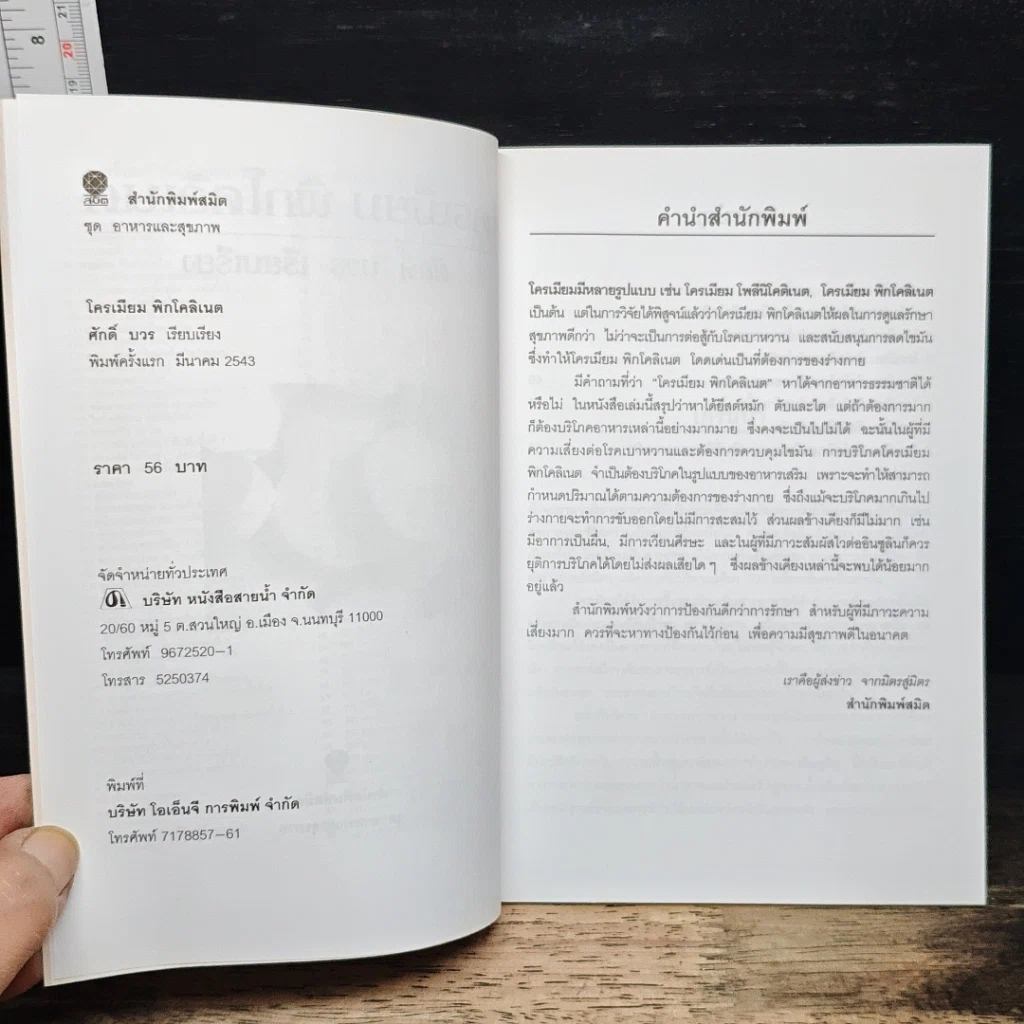 8
21
20
19
สมิต
สำนักพิมพ์สมิต
ชุด อาหารและสุขภาพ
โครเมียม พิกโคลิเนต
ศักดิ์ บวร เรียบเรียง
พิมพ์ครั้งแรก มีนาคม 2543
ราคา 56 บาท
จัดจำหน่ายทั่วประเทศ
บริษัท หนังสือสายน้ำ จำกัด
20/60 หมู่ 5 ต.สวนใหญ่ อ.เมือง จ.นนทบุรี 11000
โทรศัพท์ 9672520-1
โทรสาร 5250374
พิมพ์ที่
บริษัท โอเอ็นจี การพิมพ์ จำกัด
โทรศัพท์ 7178857-61
คำนำสำนักพิมพ์
โครเมียมมีหลายรูปแบบ เช่น โครเมียม โพลีนิโคติเนต, โครเมียม พิกโคลิเนต
เป็นต้น แต่ในการวิจัยได้พิสูจน์แล้วว่าโครเมียม พิกโคลิเนตให้ผลในการดูแลรักษา
สุขภาพดีกว่า ไม่ว่าจะเป็นการต่อสู้กับโรคเบาหวาน และสนับสนุนการลดไขมัน
ซึ่งทำให้โครเมียม พิกโคลิเนต โดดเด่นเป็นที่ต้องการของร่างกาย
มีคำถามที่ว่า "โครเมียม พิกโคลิเนต" หาได้จากอาหารธรรมชาติได้
หรือไม่ ในหนังสือเล่มนี้สรุปว่าหาได้ยีสต์หมัก ตับและไต แต่ถ้าต้องการมาก
ก็ต้องบริโภคอาหารเหล่านี้อย่างมากมาย ซึ่งคงจะเป็นไปไม่ได้ ฉะนั้นในผู้ที่มี
ความเสี่ยงต่อโรคเบาหวานและต้องการควบคุมไขมัน การบริโภคโครเมียม
พิกโคลิเนต จำเป็นต้องบริโภคในรูปแบบของอาหารเสริม เพราะจะทำให้สามารถ
กำหนดปริมาณได้ตามความต้องการของร่างกาย ซึ่งถึงแม้จะบริโภคมากเกินไป
ร่างกายจะทำการขับออกโดยไม่มีการสะสมไว้ ส่วนผลข้างเคียงก็มีไม่มาก เช่น
มีอาการเป็นผื่น, มีการเวียนศีรษะ และในผู้ที่มีภาวะสัมผัสไวต่ออินซูลินก็ควร
ยุติการบริโภคได้โดยไม่ส่งผลเสียใด ๆ ซึ่งผลข้างเคียงเหล่านี้จะพบได้น้อยมาก
อยู่แล้ว
สำนักพิมพ์หวังว่าการป้องกันดีกว่าการรักษา สำหรับผู้ที่มีภาวะความ
เสี่ยงมาก ควรที่จะหาทางป้องกันไว้ก่อน เพื่อความมีสุขภาพดีในอนาคต
เราคือผู้ส่งข่าว จากมิตรสู่มิตร
สำนักพิมพ์สมิต